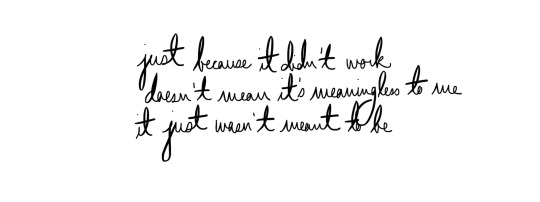 just because it didn't work
doesn't mean it's meaningless to me
it just wasn't meant to be